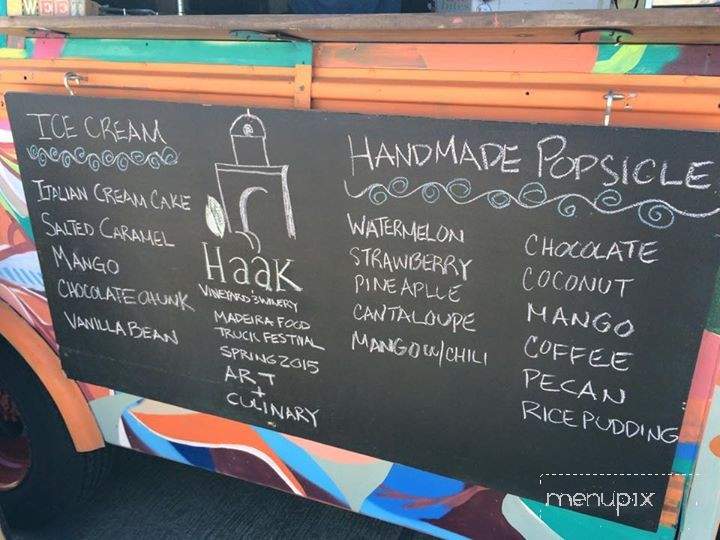 SWEET
ICE CREAM
ITALIAN CREAM CAKE
SALTED CARAMEL
MANGO
CHOCOLATE CHUNK
VANILLA BEAN
Haak
VINEYARD & WINERY
MADEIRA FOOD
TRUCK FESTIVAL
SPRING 2015
ART
+
CULINARY
HANDMADE POPSICLE
WATERMELON
STRAWBERRY
PINEAPLLE
CANTALOUPE
MANGO W/CHILI
CHOCOLATE
COCONUT
MANGO
COFFEE
PECAN
RICE PUDDING
menupix